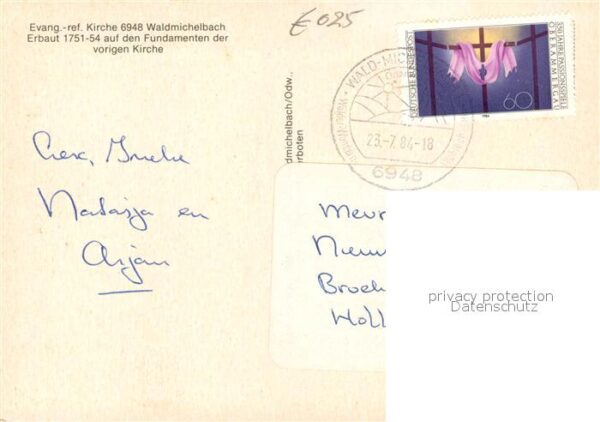 Evang.-ref. Kirche 6948 Waldmichelbach
Erbaut 1751-54 auf den Fundamenten der
vorigen Kirche
€ 025
DEUTSCHE BUNDESPOST
350 JAHRE PASSIONSSPIELE
OBERAMMERGAU
60
1984
WALD-MICH
23.-7.84-18
6948
dmichelbach/Odw.
erboten
Natasja en
Arjan
Meur
Nieuw
Broek
Holl
privacy protection
Datenschutz